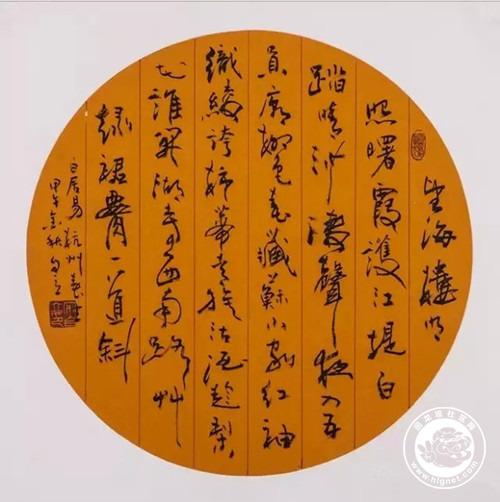 望海樓明
照曙霞護江堤白
踏晴沙濤聲夜入伍
員廟柳色春藏蘇小家紅袖
織綾誇柿蒂青旗沽酒趁梨
花誰開湖寺西南路草
綠裙腰一道斜
白居易杭州春
甲午金秋
www.hlgnet.com